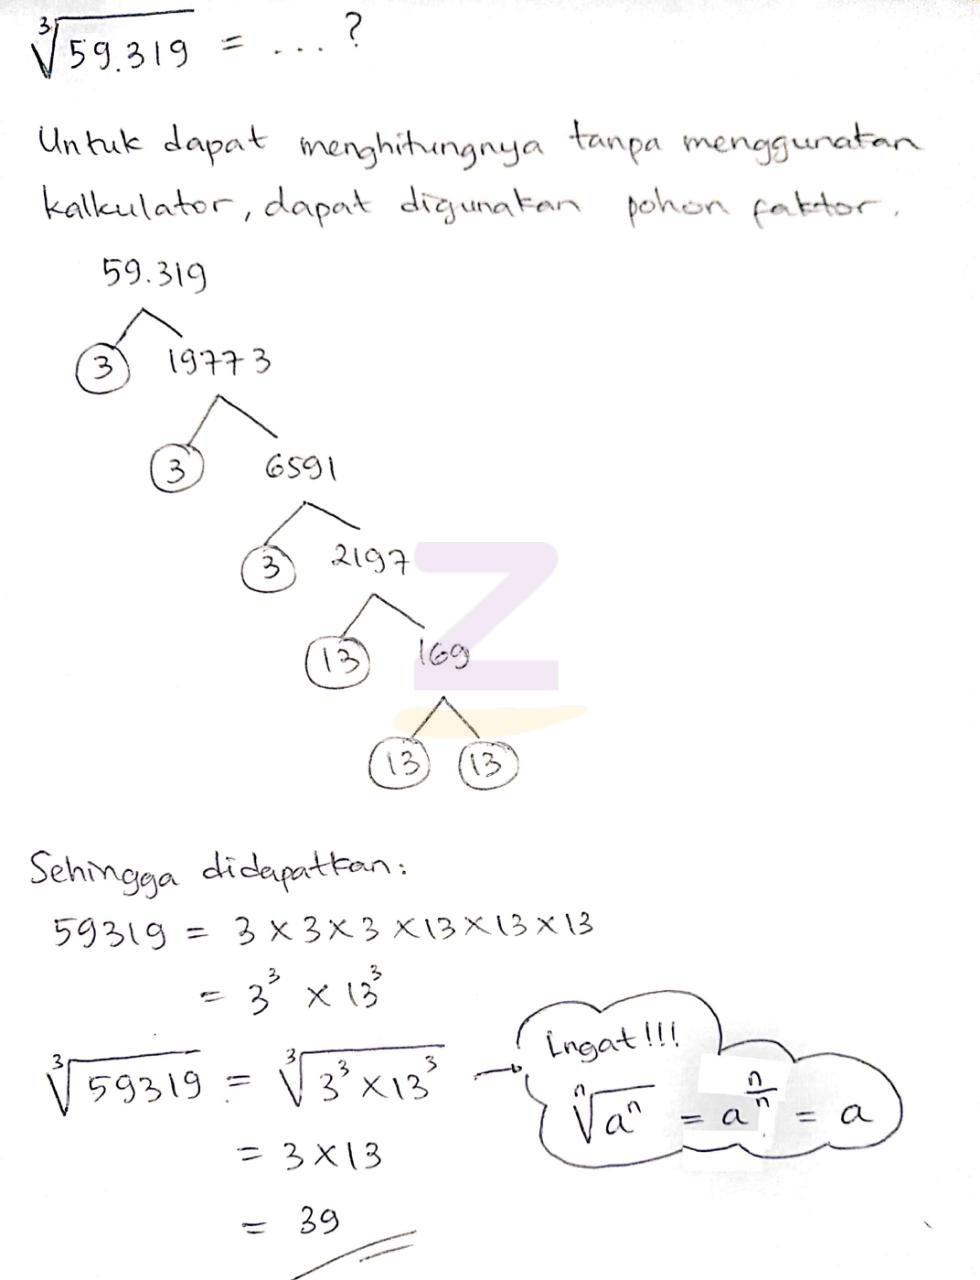 ∛59.319 = ... ?
Untuk dapat menghitungnya tanpa menggunakan
kalkulator, dapat digunakan pohon faktor.
59.319
3 19773
3 6591
3 2197
13 169
13 13
Sehingga didapatkan:
59319 = 3 × 3 × 3 × 13 × 13 × 13
= 3³ × 13³
∛59319 = ∛(3³ × 13³)
= 3 × 13
= 39
Ingat!!!
ⁿ√aⁿ = a^(n/n) = a
Z